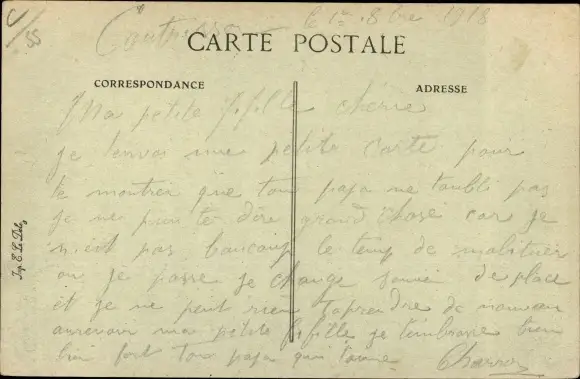 le 1er 8bre 1918
CARTE POSTALE
CORRESPONDANCE
ADRESSE
Ma petite fifille cherre
je tenvoi une petite carte pour
te montrer que ton papa ne toubli pas
je ne peut te dire grand chose car je
n'eit pas baucoup le temp de
ou je passe je change souvie de place
et je ne peut rien taprendre de nouvau
aurevoir ma petite fifille je tembrasse bien
bien fort ton papa qui t'aime
Imp. E. Le Del